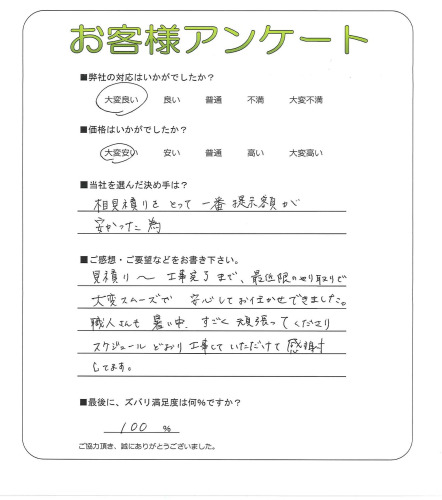 お客様アンケート
■弊社の対応はいかがでしたか？
大変良い　良い　普通　不満　大変不満
■価格はいかがでしたか？
大変安い　安い　普通　高い　大変高い
■当社を選んだ決め手は？
相見積りをとって一番提示額が
安かった為
■ご感想・ご要望などをお書き下さい。
見積り〜工事完了まで、最低限のやり取りで
大変スムーズで 安心してお任かせできました。
職人さんも暑い中、すごく頑張ってくださり
スケジュールどおり工事していただけて感謝
してます。
■最後に、ズバリ満足度は何％ですか？
100 %
ご協力頂き、誠にありがとうございました。